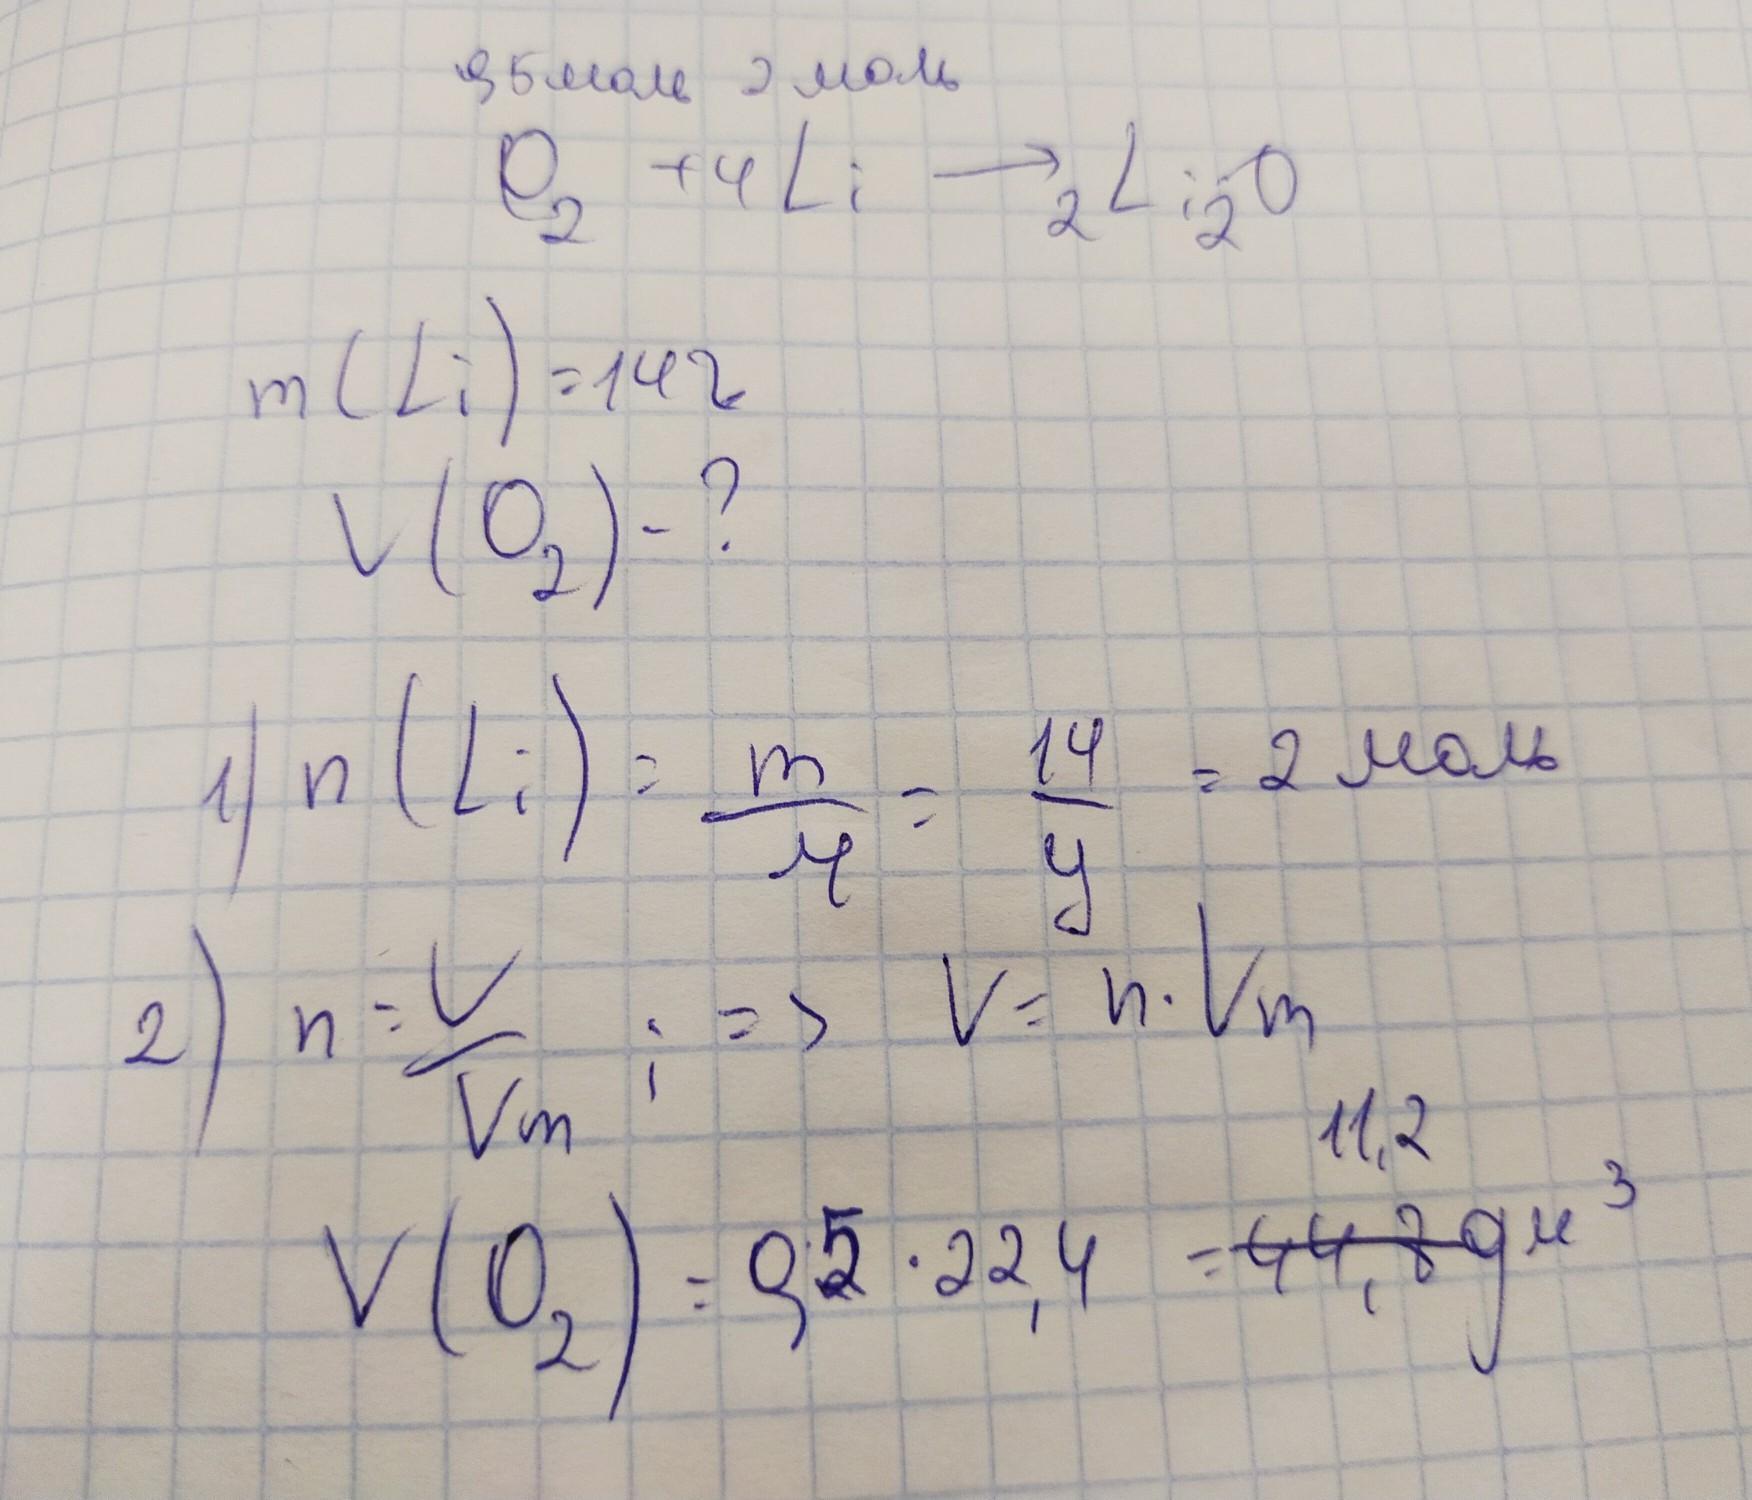 0,5 моль 2 моль
O₂ + 4Li → 2Li₂O
m(Li) = 14 г
V(O₂) - ?
1) n(Li) = m/M = 14/7 = 2 моль
2) n = V/Vm ; => V = n · Vm
11,2
V(O₂) = 0,5 · 22,4 = 44,8 дм³